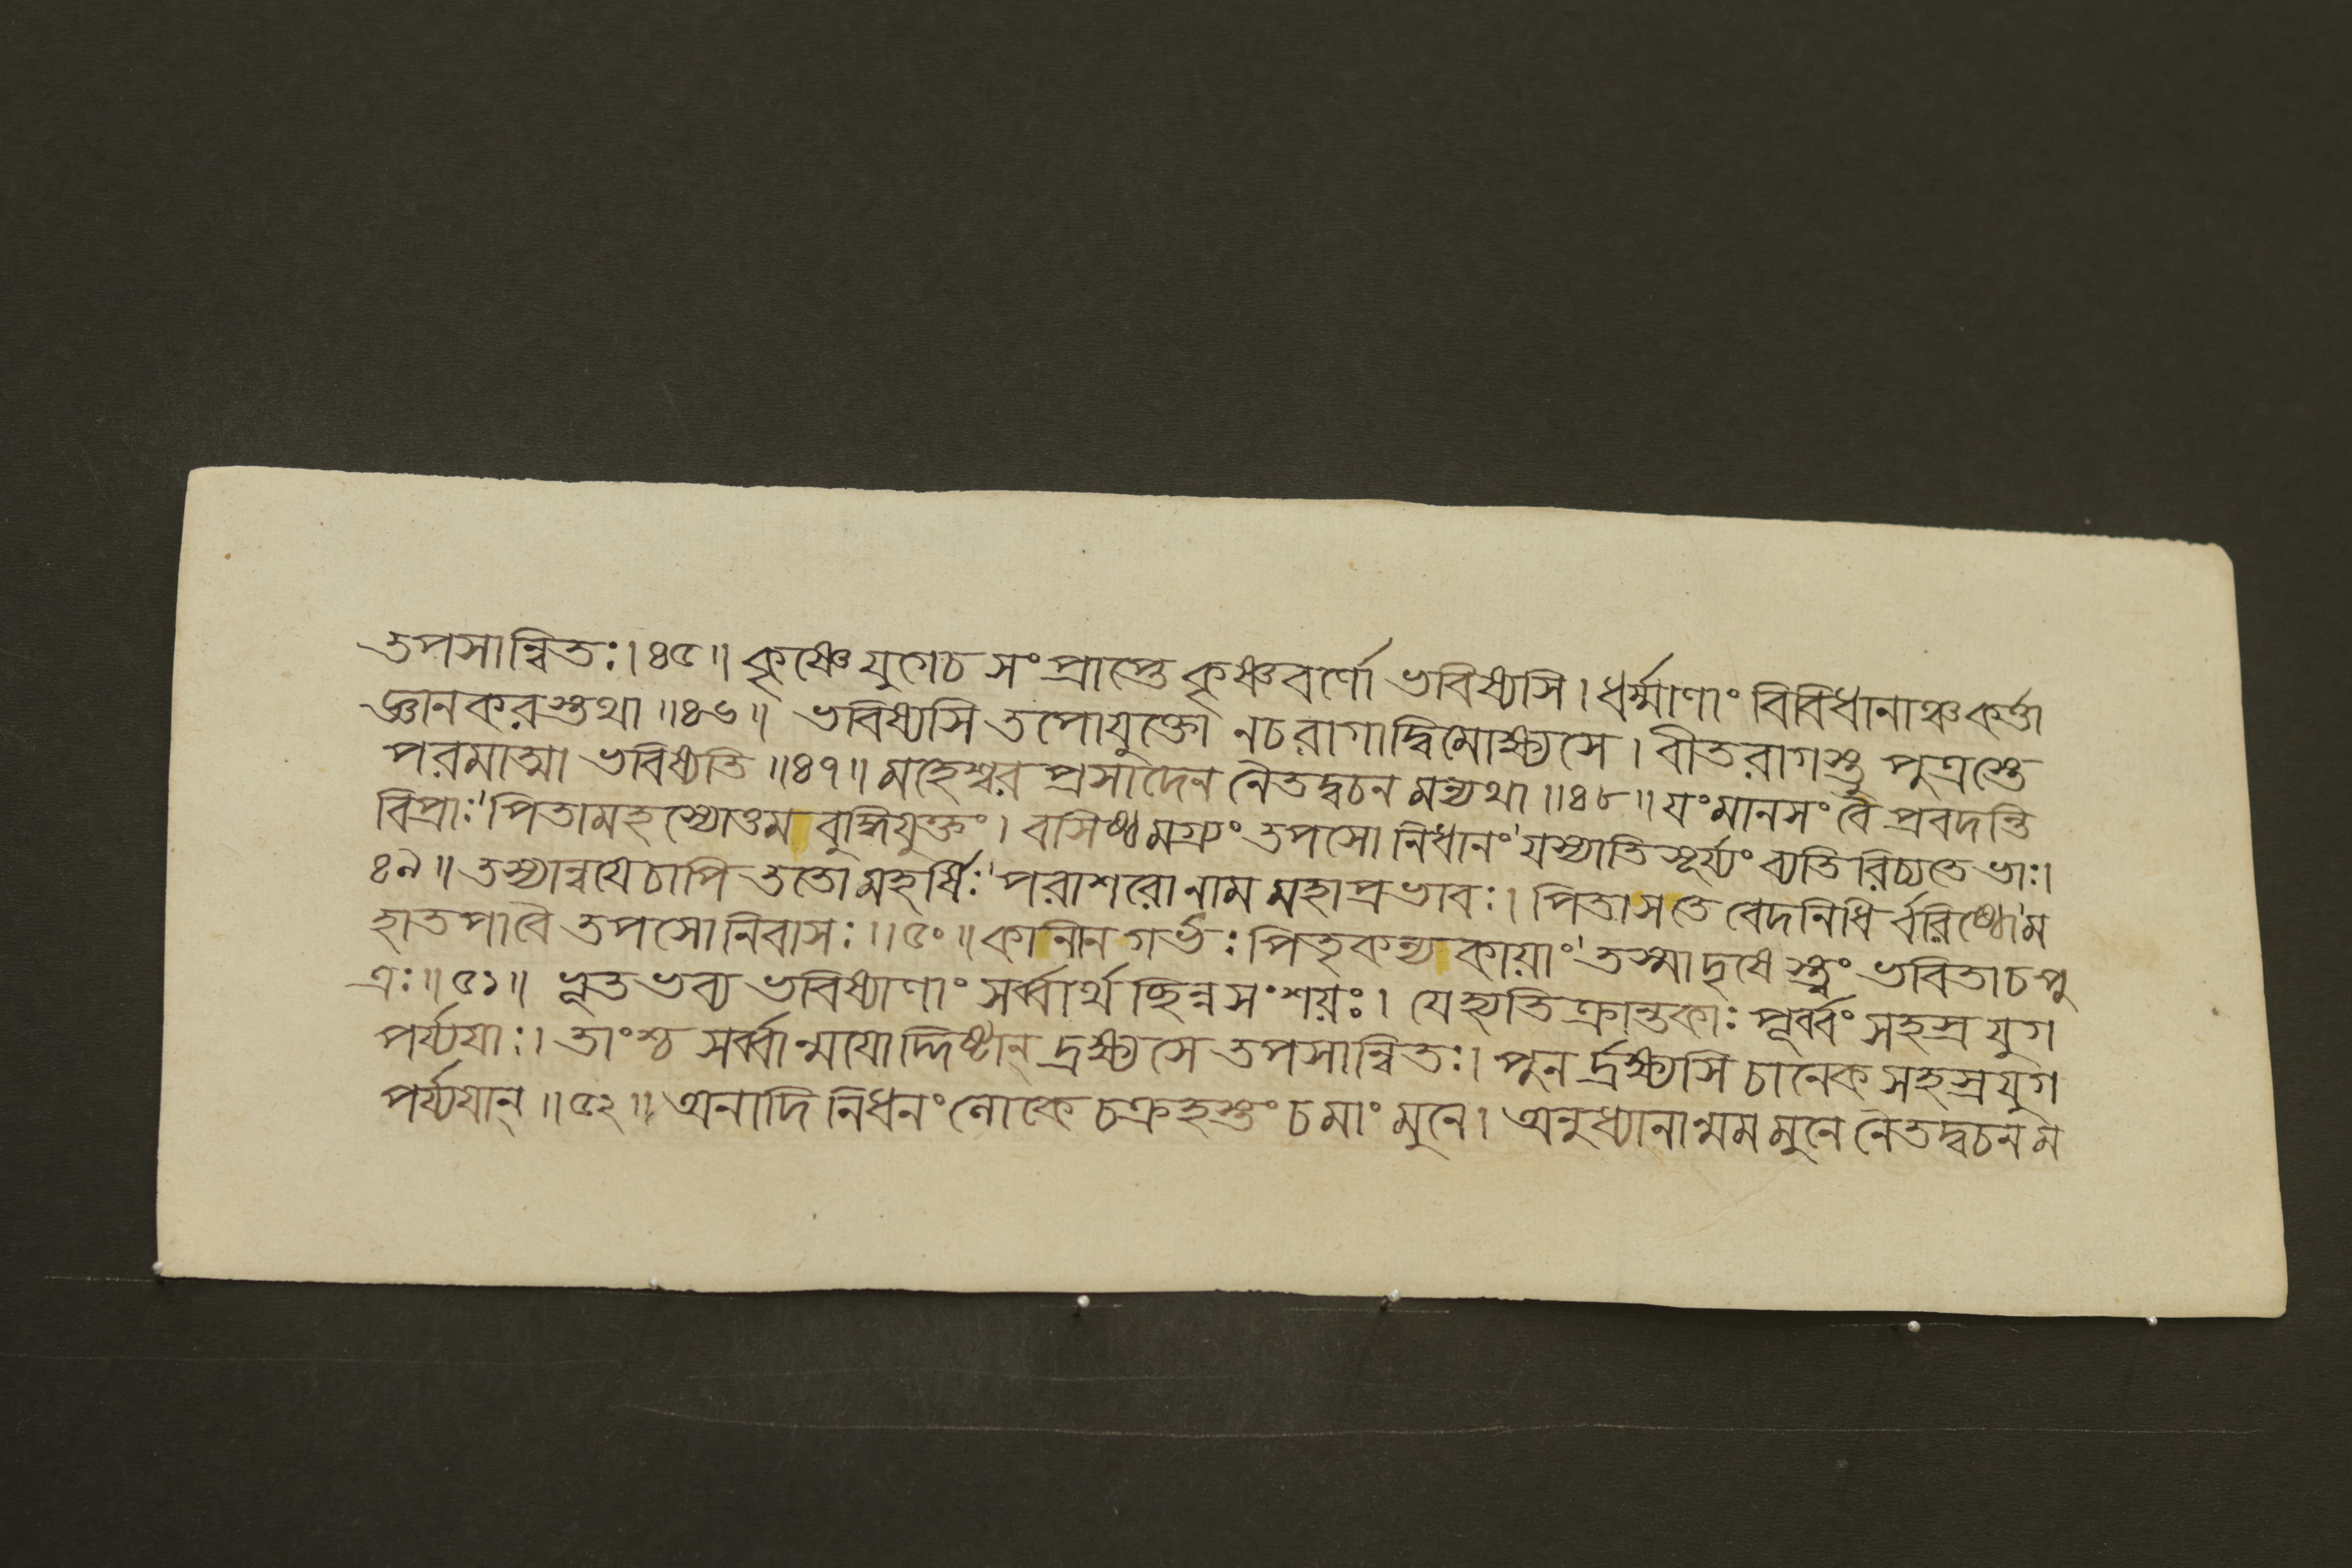 তপসান্বিতঃ। ৪৫॥ কৃষ্ণে যুগেচ সংপ্রাপ্তে কৃষ্ণবর্ণো ভবিষ্যসি। ধর্ম্মাণাং বিবিধানাঞ্চ কর্ত্তা
জ্ঞানকরস্তথা॥৪৬॥ ভবিষ্যসি তপোযুক্তো নচরাগাদ্বিমোক্ষ্যসে। বীতরাগস্তু পুত্রস্তে
পরমাত্মা ভবিষ্যতি॥৪৭॥ মহেশ্বর প্রসাদেন নৈতদ্বচন মন্যথা॥৪৮॥ যংমানসং বৈ প্রবদন্তি
বিপ্রাঃ'পিতামহস্যোত্তম বুদ্ধিযুক্তং। বসিষ্ঠমগ্র্যং তপসো নিধানং'যস্যাতি সূর্য্যং ব্যতিরিচ্যতে ভাঃ।
৪৯॥ তস্যান্বযেচাপি ততো মহর্ষিঃ'পরাশরো নাম মহাপ্রভাবঃ। পিতাসতে বেদনিধি র্বরিষ্ঠো'ম
হাতপাবৈ তপসো নিবাসঃ॥৫০॥ কানীন গর্ভঃ পিতৃকন্যকায়াং'তস্মাদৃষেস্ত্বং ভবিতাচপু
ত্রঃ॥৫১॥ ভূতভব্য ভবিষ্যাণাং সর্ব্বার্থ চ্ছিন্নসংশয়ঃ। যেহ্যতিক্রান্তকাঃ পূর্ব্বং সহস্রযুগ
পর্য্যযাঃ। তাংশ্চ সর্ব্বান্মযোদ্দিষ্টান্ দ্রক্ষ্যসে তপসান্বিতঃ। পুনর্দ্রক্ষ্যসি চানেকসহস্রযুগ
পর্য্যযান্॥৫২॥ অনাদি নিধনং লোকে চক্রহস্তং চমাং মুনে। অনুধ্যানান্মম মুনে নৈতদ্বচনম